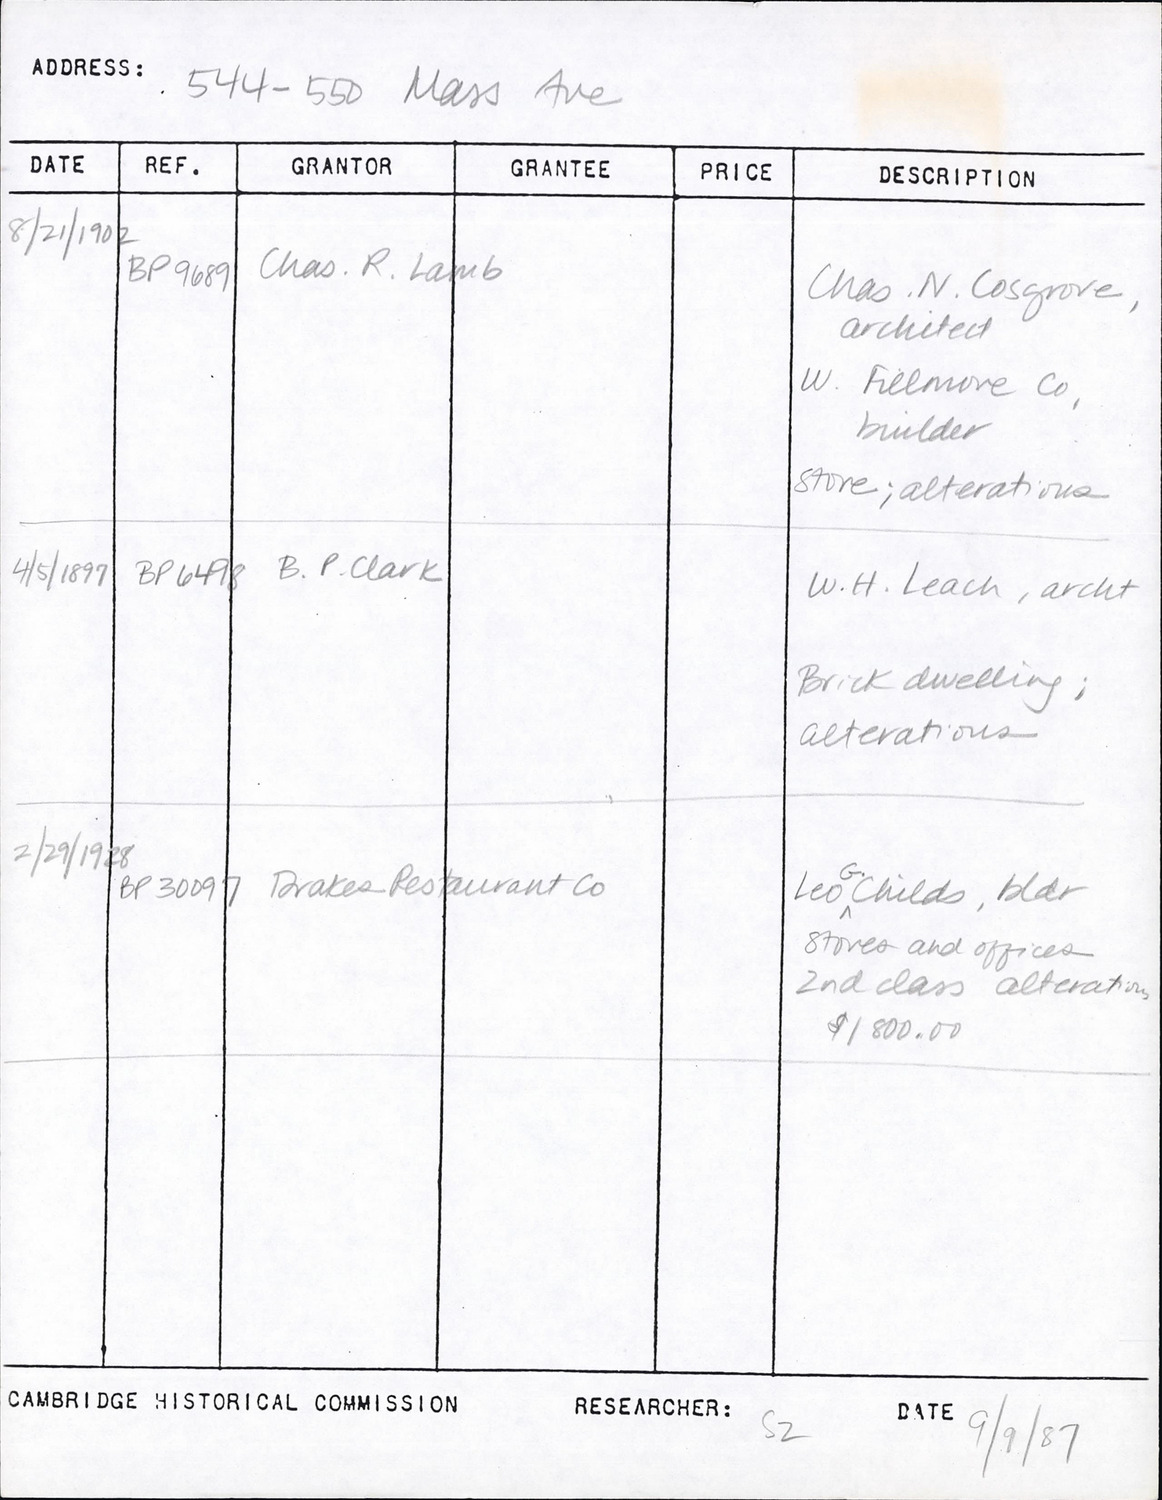 ADDRESS: 544-550 Mass Ave
DATE REF. GRANTOR GRANTEE PRICE DESCRIPTION
8/21/1902
BP 9689 Chas. R. Lamb
Chas. N. Cosgrove,
architect
W. Fillmore Co,
builder
store; alterations
4/5/1897 BP 6498 B. P. Clark
W.H. Leach, archt
Brick dwelling;
alterations
2/29/1928
BP 30097 Drakes Restaurant Co
Leo G. Childs, bldr
stores and offices
2nd class alterations
$1800.00
CAMBRIDGE HISTORICAL COMMISSION RESEARCHER: SZ DATE 9/9/87